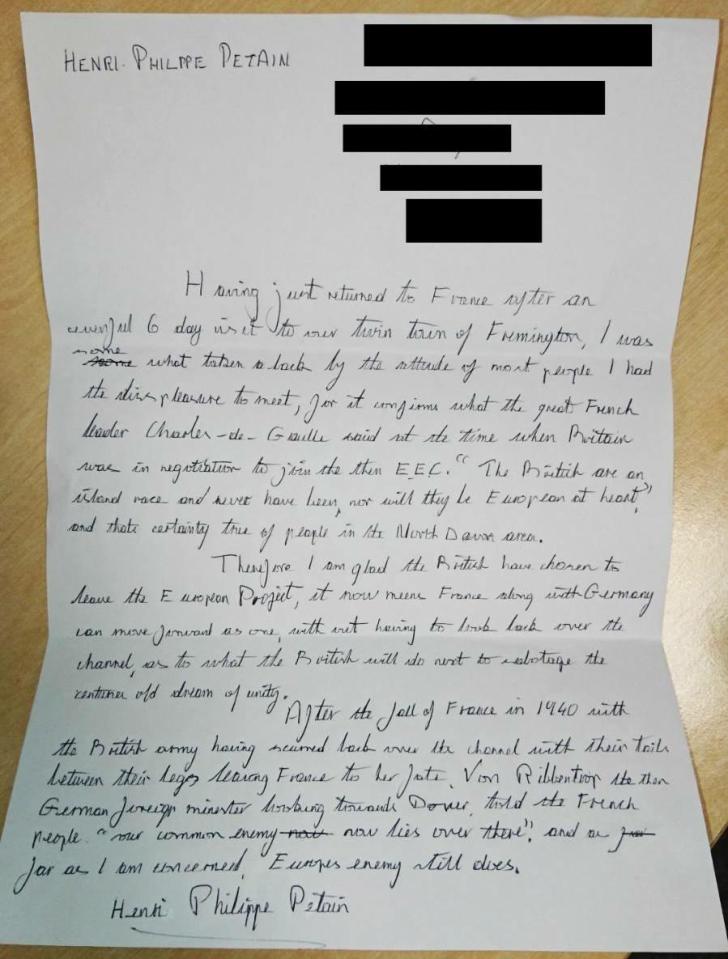 HENRI-PHILIPPE PETAIN
Having just returned to France after an
awful 6 day visit to our twin town of Fremington, I was
some what taken a back by the attitude of most people I had
the diss pleasure to meet, for it confirms what the great French
leader Charles-de-Gaulle said at the time when Britain
was in negotiation to join the then E.E.C. "The British are an
island race and never have been, nor will they be European at heart",
and thats certainty true of people in the North Devon area.
Therefore I am glad the British have chosen to
leave the European Project, it now means France along with Germany
can move forward as one, with out having to look back over the
channel, as to what the British will do next to sabotage the
centuries old dream of unity.
After the fall of France in 1940 with
the British army having scurried back over the channel with their tails
between their legs leaving France to her fate. Von Ribbentrop the then
German foreign minister looking towards Dover, told the French
people. "our common enemy now lies over there", and as
far as I am concerned, Europes enemy still does.
Henri Philippe Petain